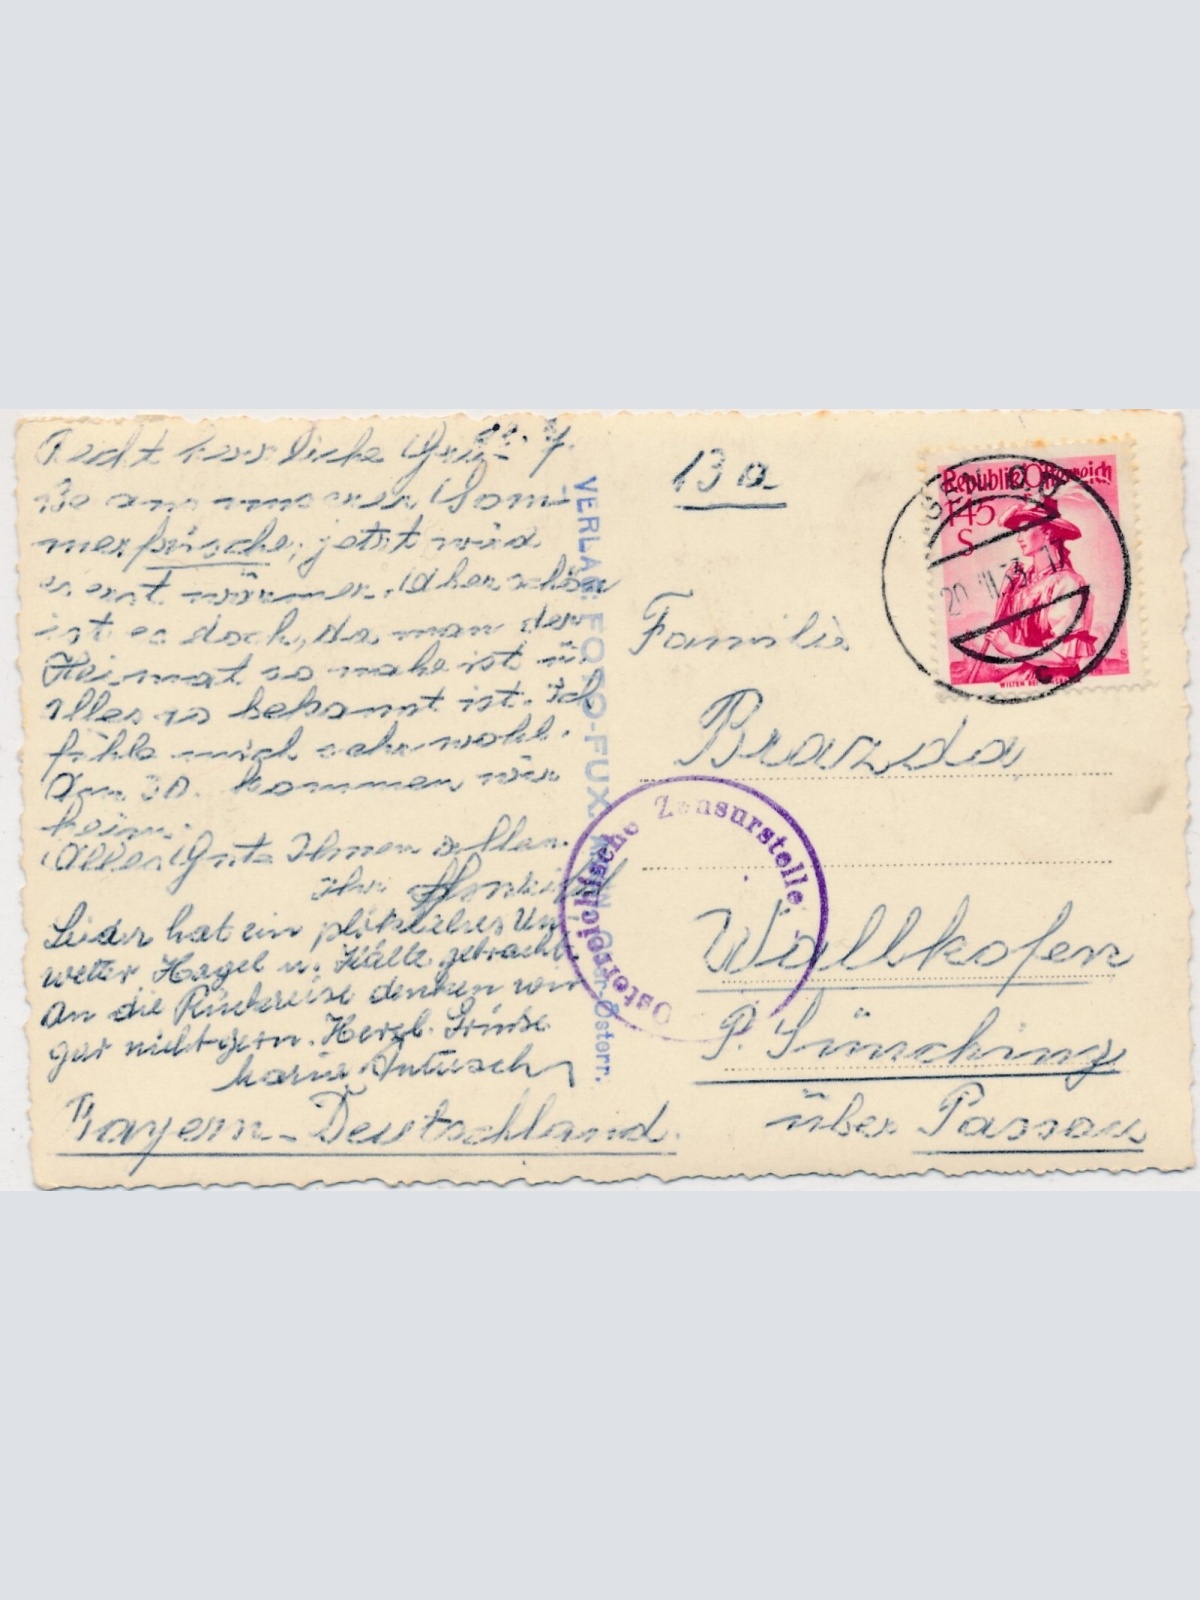 Recht herzliche Grü-
ße aus unserer Som-
merfrische; jetzt wird
es erst wärmer. Aber schön
ist es doch, da man der
Heimat so nahe ist u.
alles so bekannt ist. Ich
fühle mich sehr wohl.
Am 30. kommen wir
heim.
Alles Gute Ihnen allen.
Ihr
Leider hat ein plötzliches Un-
wetter Hagel u. Kälte gebracht.
An die Rückreise denken wir
gar nicht gern. Herzl. Grüße
Marie
Bayern-Deutschland.
VERLAG FOTO-FUX
Österr.
13a
Familie
Brazda
Wallkofen
P. Sünching
über Passau
Republik Österreich
1'45
S
20. 53-17
c
WILTEN
Österreichische Zensurstelle